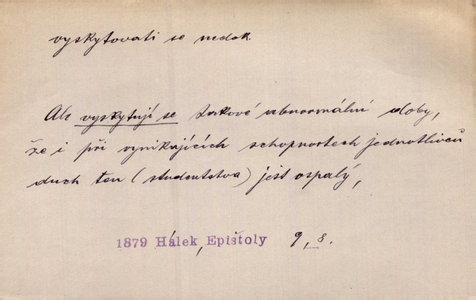 vyskytovati se nedok
Ale vyskytují se takové abnormální doby,
že i při vynikajících schopnostech jednotlivců
duch ten (studentstva) jest ospalý,
1879 Hálek, Epištoly 9, 8.